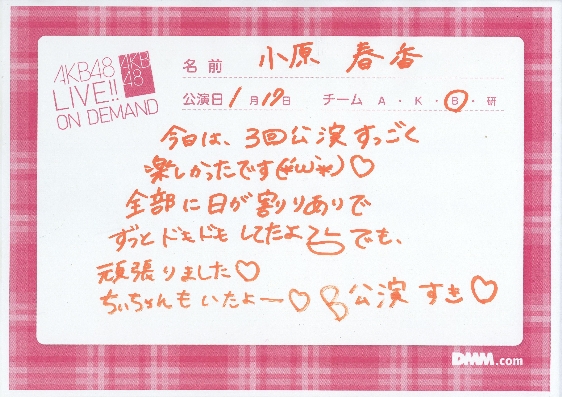 AKB48
LIVE!!
ON DEMAND
AKB
48
名前 小原 春香
公演日 1月19日 チーム A・K・B・研
今日は、3回公演すっごく
楽しかったです(*ω*)♡
全部に日が割りありで
ずっとドキドキしてたよ でも、
頑張りました♡
ちぃちゃんもいたよー♡ B公演 すき♡
DMM.com